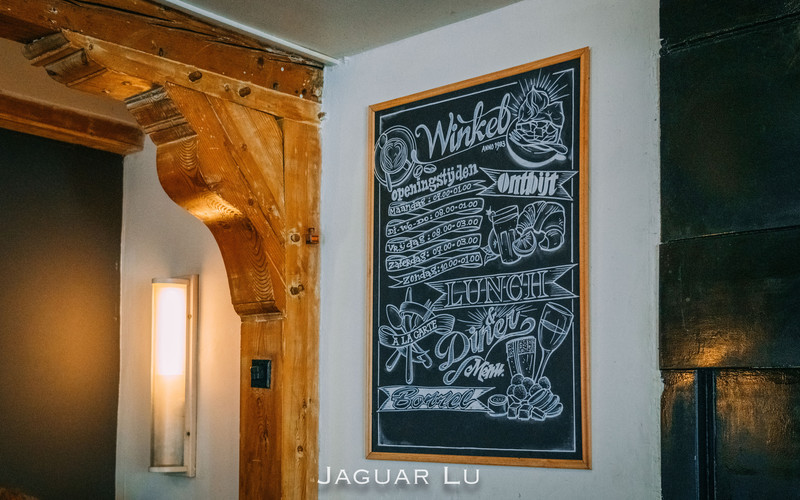 Winkel
ANNO 1983
openingstijden
Ontbijt
Maandag: 07.00-01.00
Di. Wo. Do: 08.00-01.00
Vrijdag: 08.00-03.00
Zaterdag: 07.00-03.00
Zondag: 10.00-01.00
LUNCH
A LA CARTE
&
Diner
Menu
Borrel
JAGUAR LU